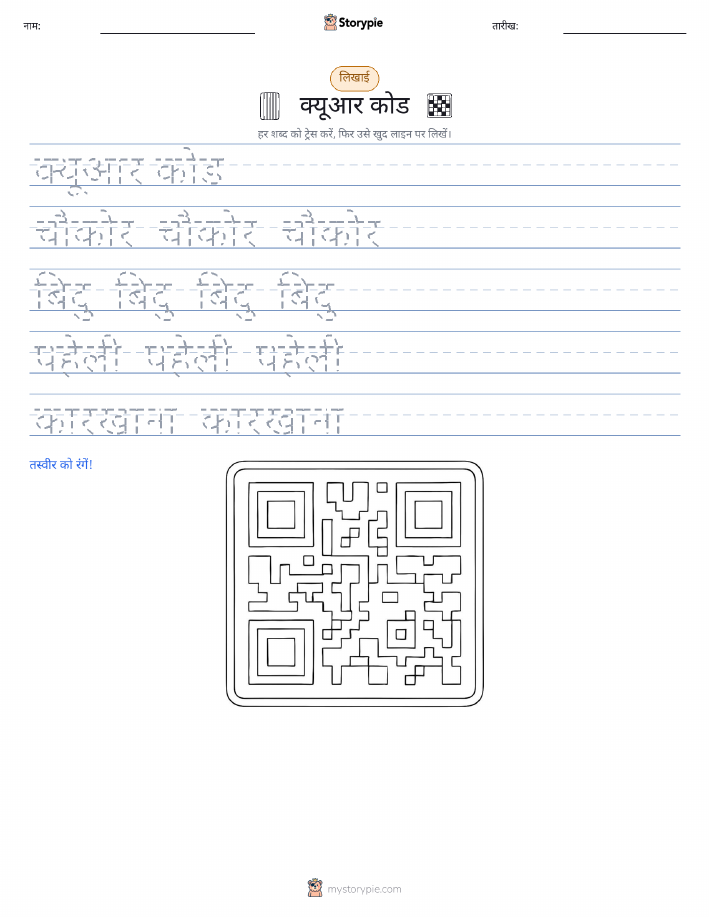 नाम:
Storypie
तारीख:
लिखाई
क्यूआर कोड
हर शब्द को ट्रेस करें, फिर उसे खुद लाइन पर लिखें।
क्यूआर कोड
चौकोर चौकोर चौकोर
बिंदु बिंदु बिंदु बिंदु
पहेली पहेली पहेली
कारखाना कारखाना
तस्वीर को रंगें!
mystorypie.com